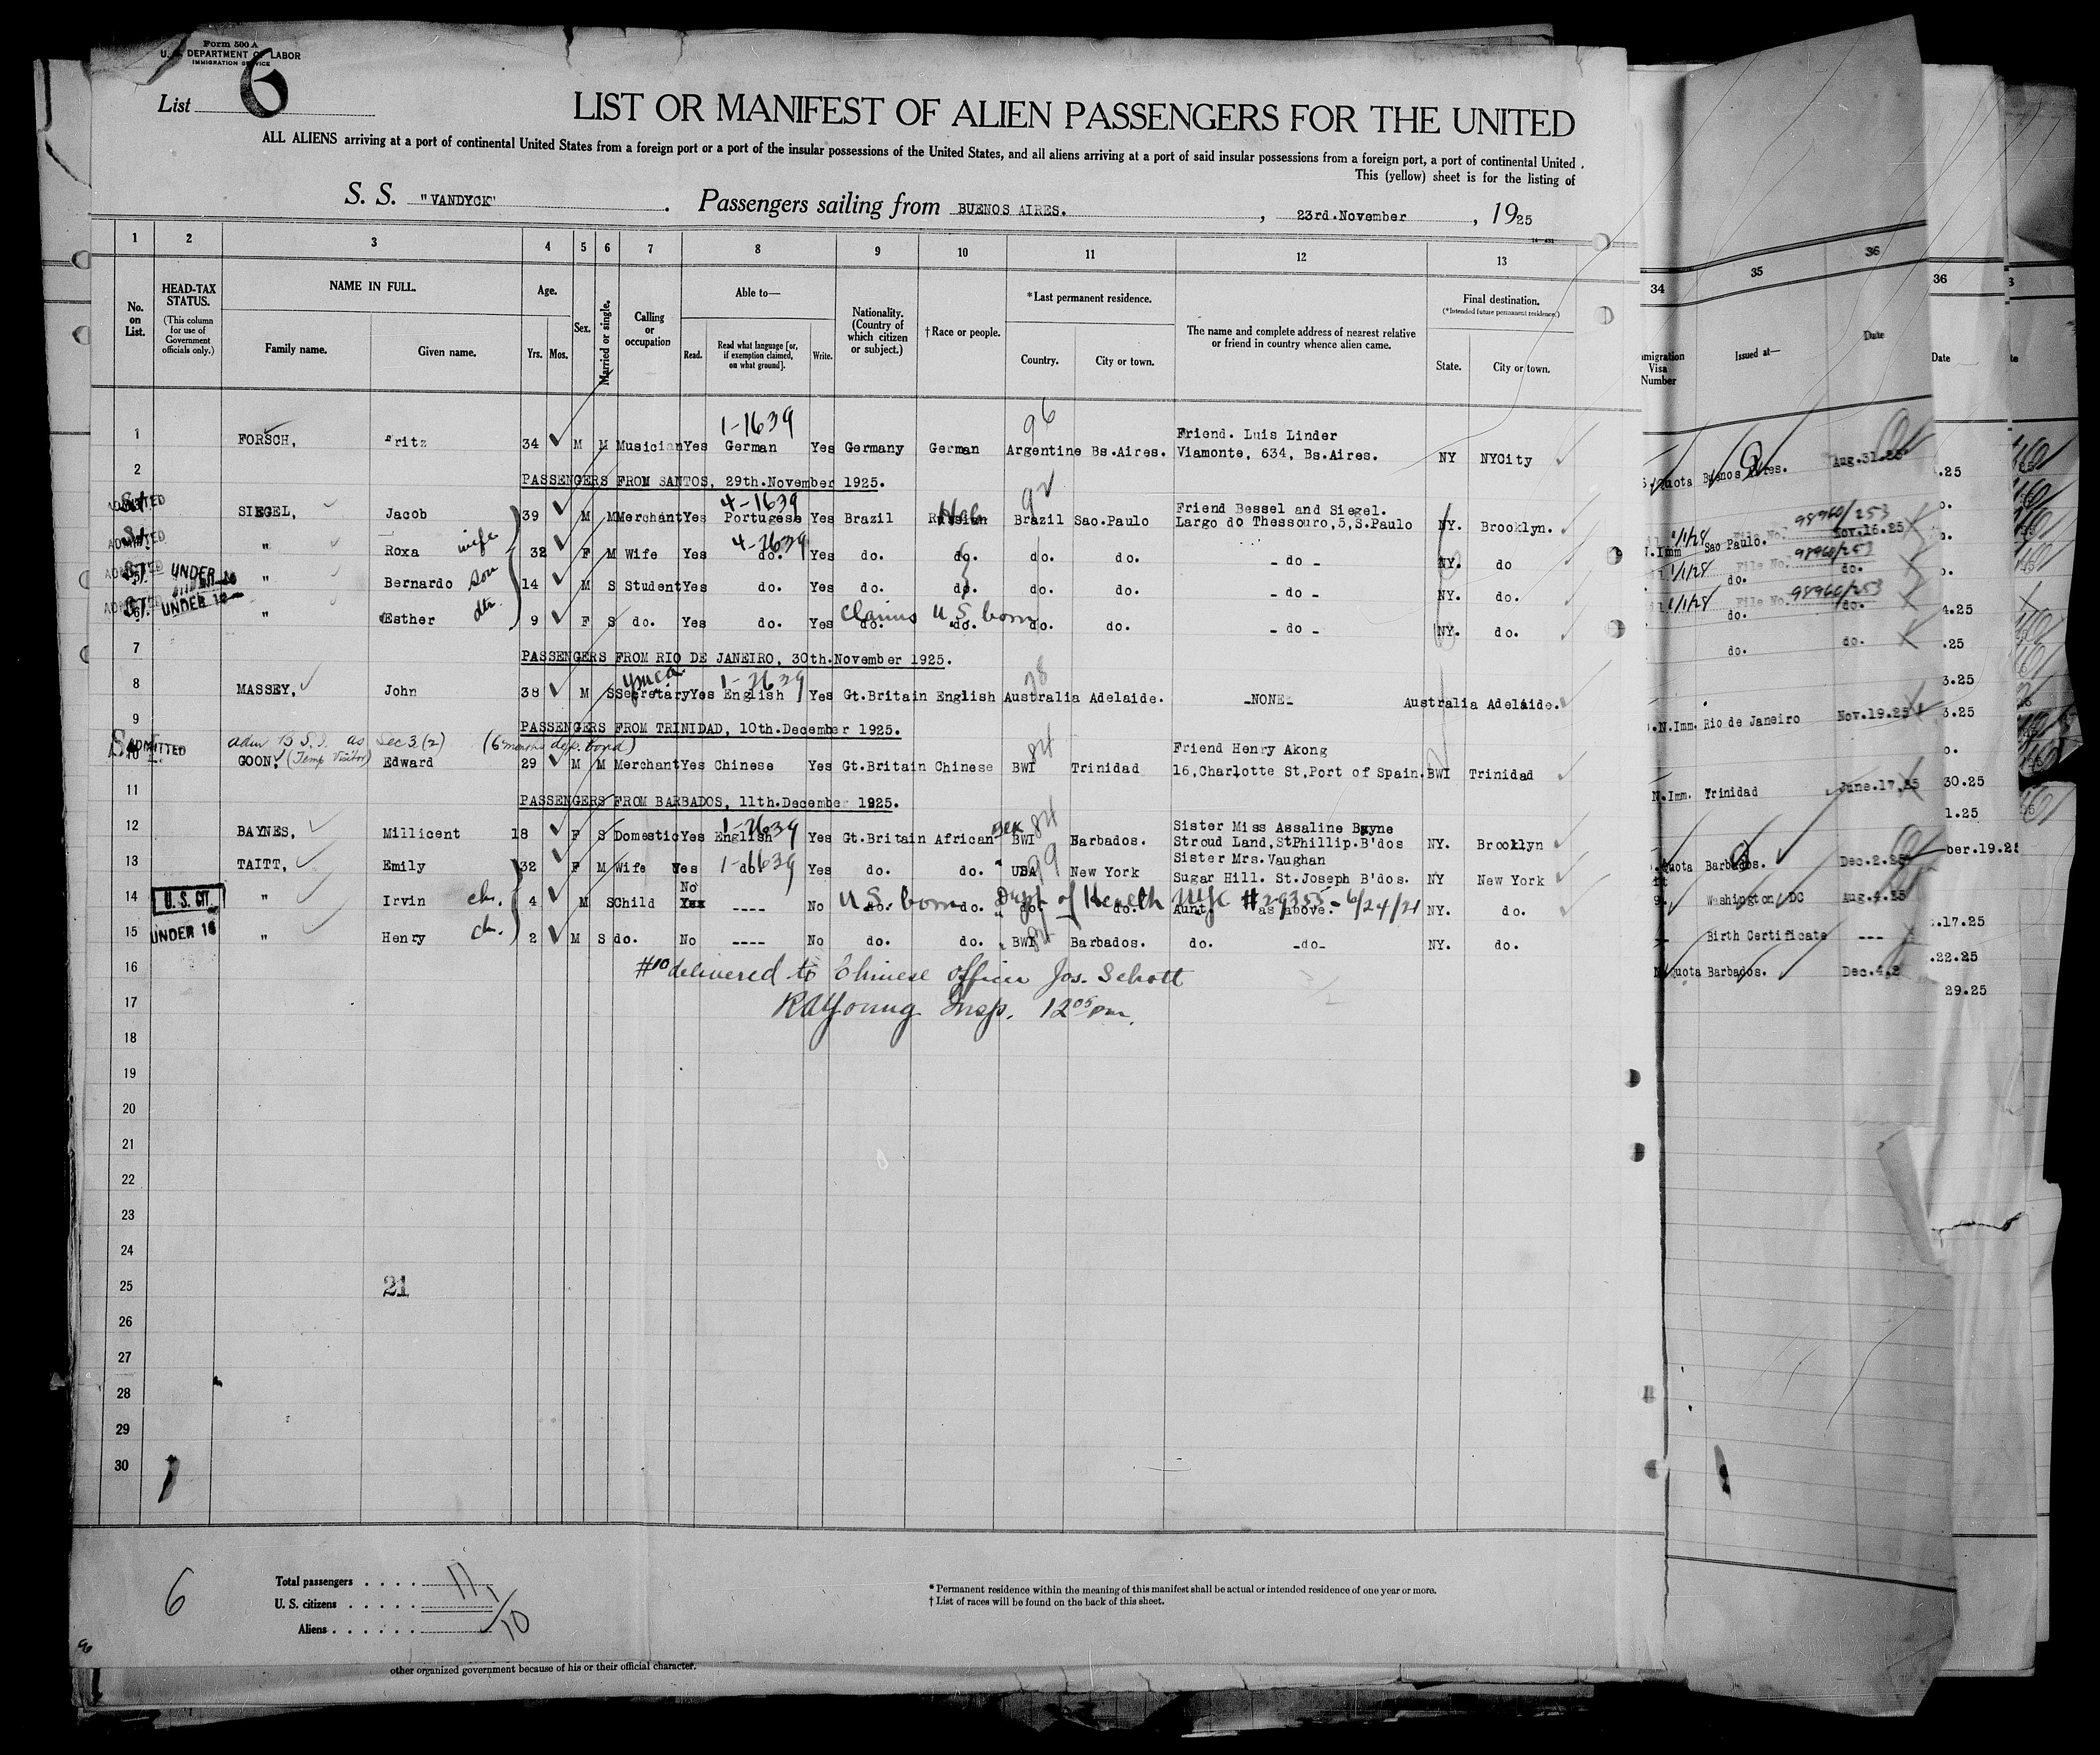 Form 500 A
U. S. DEPARTMENT OF LABOR
IMMIGRATION SERVICE
List 6
LIST OR MANIFEST OF ALIEN PASSENGERS FOR THE UNITED
ALL ALIENS arriving at a port of continental United States from a foreign port or a port of the insular possessions of the United States, and all aliens arriving at a port of said insular possessions from a foreign port, a port of continental United
This (yellow) sheet is for the listing of
S. S. "VANDYCK" . Passengers sailing from BUENOS AIRES. , 23rd.November , 1925
1 2 3 4 5 6 7 8 9 10 11 12 13
34 35 36 36
No. on List.
HEAD-TAX STATUS.
(This column for use of Government officials only.)
NAME IN FULL.
Family name. Given name.
Age.
Yrs. Mos.
Sex.
Married or single.
Calling or occupation
Able to—
Read. Read what language [or, if exemption claimed, on what ground]. Write.
Nationality. (Country of which citizen or subject.)
† Race or people.
*Last permanent residence.
Country. City or town.
The name and complete address of nearest relative or friend in country whence alien came.
Final destination.
(*Intended future permanent residence.)
State. City or town.
Visa Number
Issued at—
Date
Date
1-1639 96
1 FORSCH, Fritz 34 M M Musician Yes German Yes Germany German Argentine Bs.Aires. Friend. Luis Linder
Viamonte, 634, Bs.Aires. NY NYCity Quota Buenos Aires. Aug.31.25
2 PASSENGERS FROM SANTOS, 29th.November 1925.
ADMITTED 4-1639
SIEGEL, Jacob 39 M M Merchant Yes Portugese Yes Brazil Russian Brazil Sao.Paulo Friend Bessel and Siegel.
Largo do Thessouro,5,S.Paulo NY. Brooklyn. Sao Paulo. Nov.16.25
File No. 98960/253
ADMITTED " Roxa wife 32 F M Wife Yes do. Yes do. do. do. do. - do - NY. do
File No. 98960/253
ADMITTED UNDER 16 " Bernardo Son 14 M S Student Yes do. Yes do. do. do. do. - do - NY. do.
File No. 98960/253
ADMITTED UNDER 16 " Esther dtr. 9 F S do. Yes do. Yes do. do. do. do. - do - NY. do.
Claims U S born
7 PASSENGERS FROM RIO DE JANEIRO, 30th.November 1925.
ymca
8 MASSEY, John 38 M S Secretary Yes English Yes Gt.Britain English Australia Adelaide. -NONE- Australia Adelaide. N.Imm. Rio de Janeiro Nov.19.25
9 PASSENGERS FROM TRINIDAD, 10th.December 1925.
ADMITTED
as Sec 3 (2) (6 months dep. bond)
(Temp Visitor)
10 GOON, Edward 29 M M Merchant Yes Chinese Yes Gt.Britain Chinese BWI Trinidad Friend Henry Akong
16,Charlotte St,Port of Spain. BWI Trinidad N.Imm. Trinidad June.17.25
11 PASSENGERS FROM BARBADOS, 11th.December 1925.
12 BAYNES, Millicent 18 F S Domestic Yes English Yes Gt.Britain African BWI Barbados. Sister Miss Assaline Bayne
Stroud Land,StPhillip.B'dos NY. Brooklyn Quota Barbados. Dec.2.25
13 TAITT, Emily 32 F M Wife Yes do. Yes do. do. USA New York Sister Mrs.Vaughan
Sugar Hill. St.Joseph B'dos. NY New York Washington DC Aug.4.25
14 U. S. CIT. " Irvin ch. 4 M S Child No ---- No do. do. do. do. Aunt. as above. NY. do. Birth Certificate ---
U S born Dept of Health NYC #29355 - 6/24/21
15 UNDER 16 " Henry ch. 2 M S do. No ---- No do. do. BWI Barbados. do. -do- NY. do. Quota Barbados. Dec.4.2
16 #10 delivered to Chinese officer Jos. Schott
17 RAYoung Insp. 12 05 pm.
18
19
20
21
22
23
24
25 21
26
27
28
29
30
6
Total passengers . . . . 11
U. S. citizens . . . . . 1
Aliens . . . . . . 10
* Permanent residence within the meaning of this manifest shall be actual or intended residence of one year or more.
† List of races will be found on the back of this sheet.
other organized government because of his or their official character.